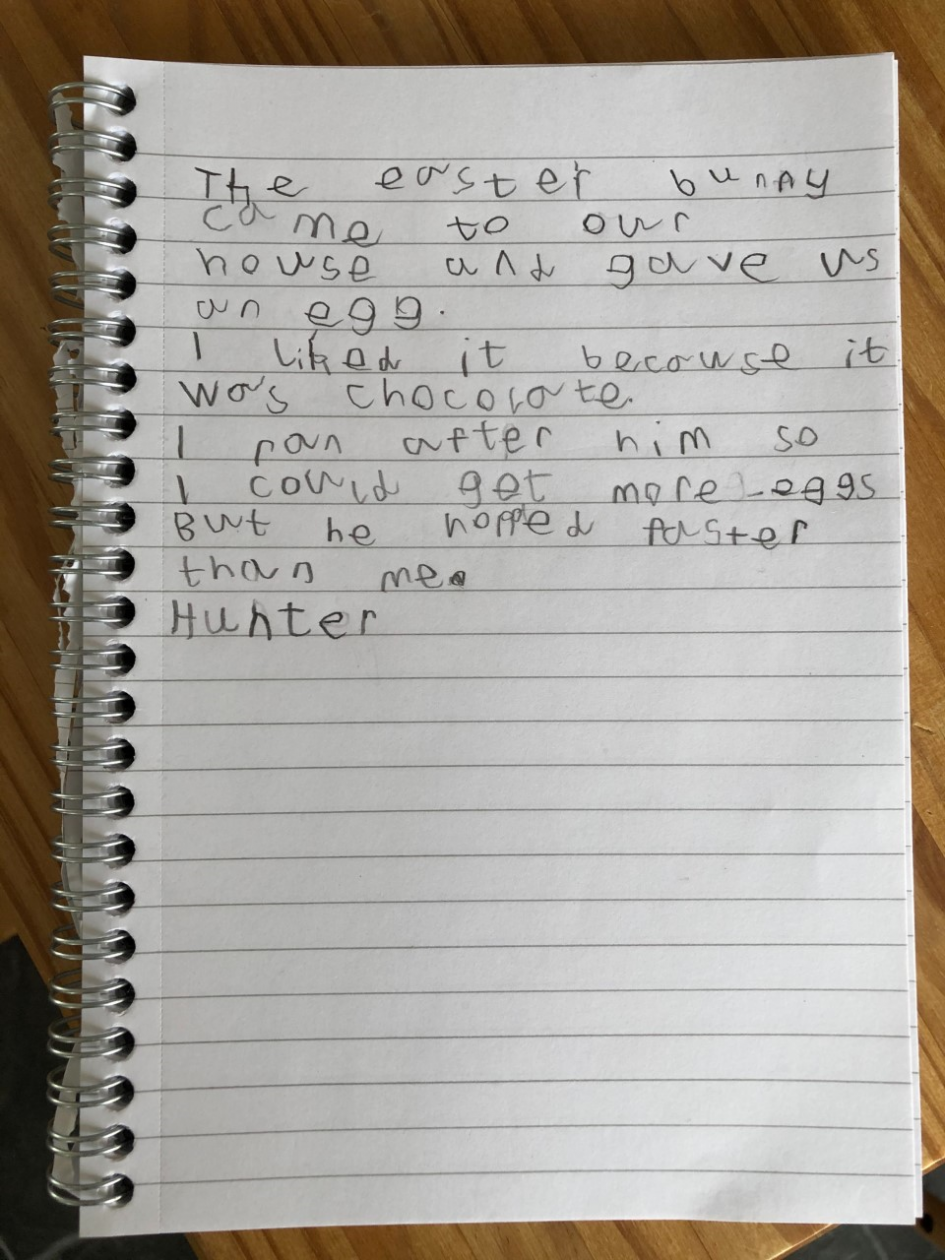 The easter bunny
came to our
house and gave us
an egg.
I liked it because it
was chocolate.
I ran after him so
I could get more eggs
But he hopped faster
than me.
Hunter